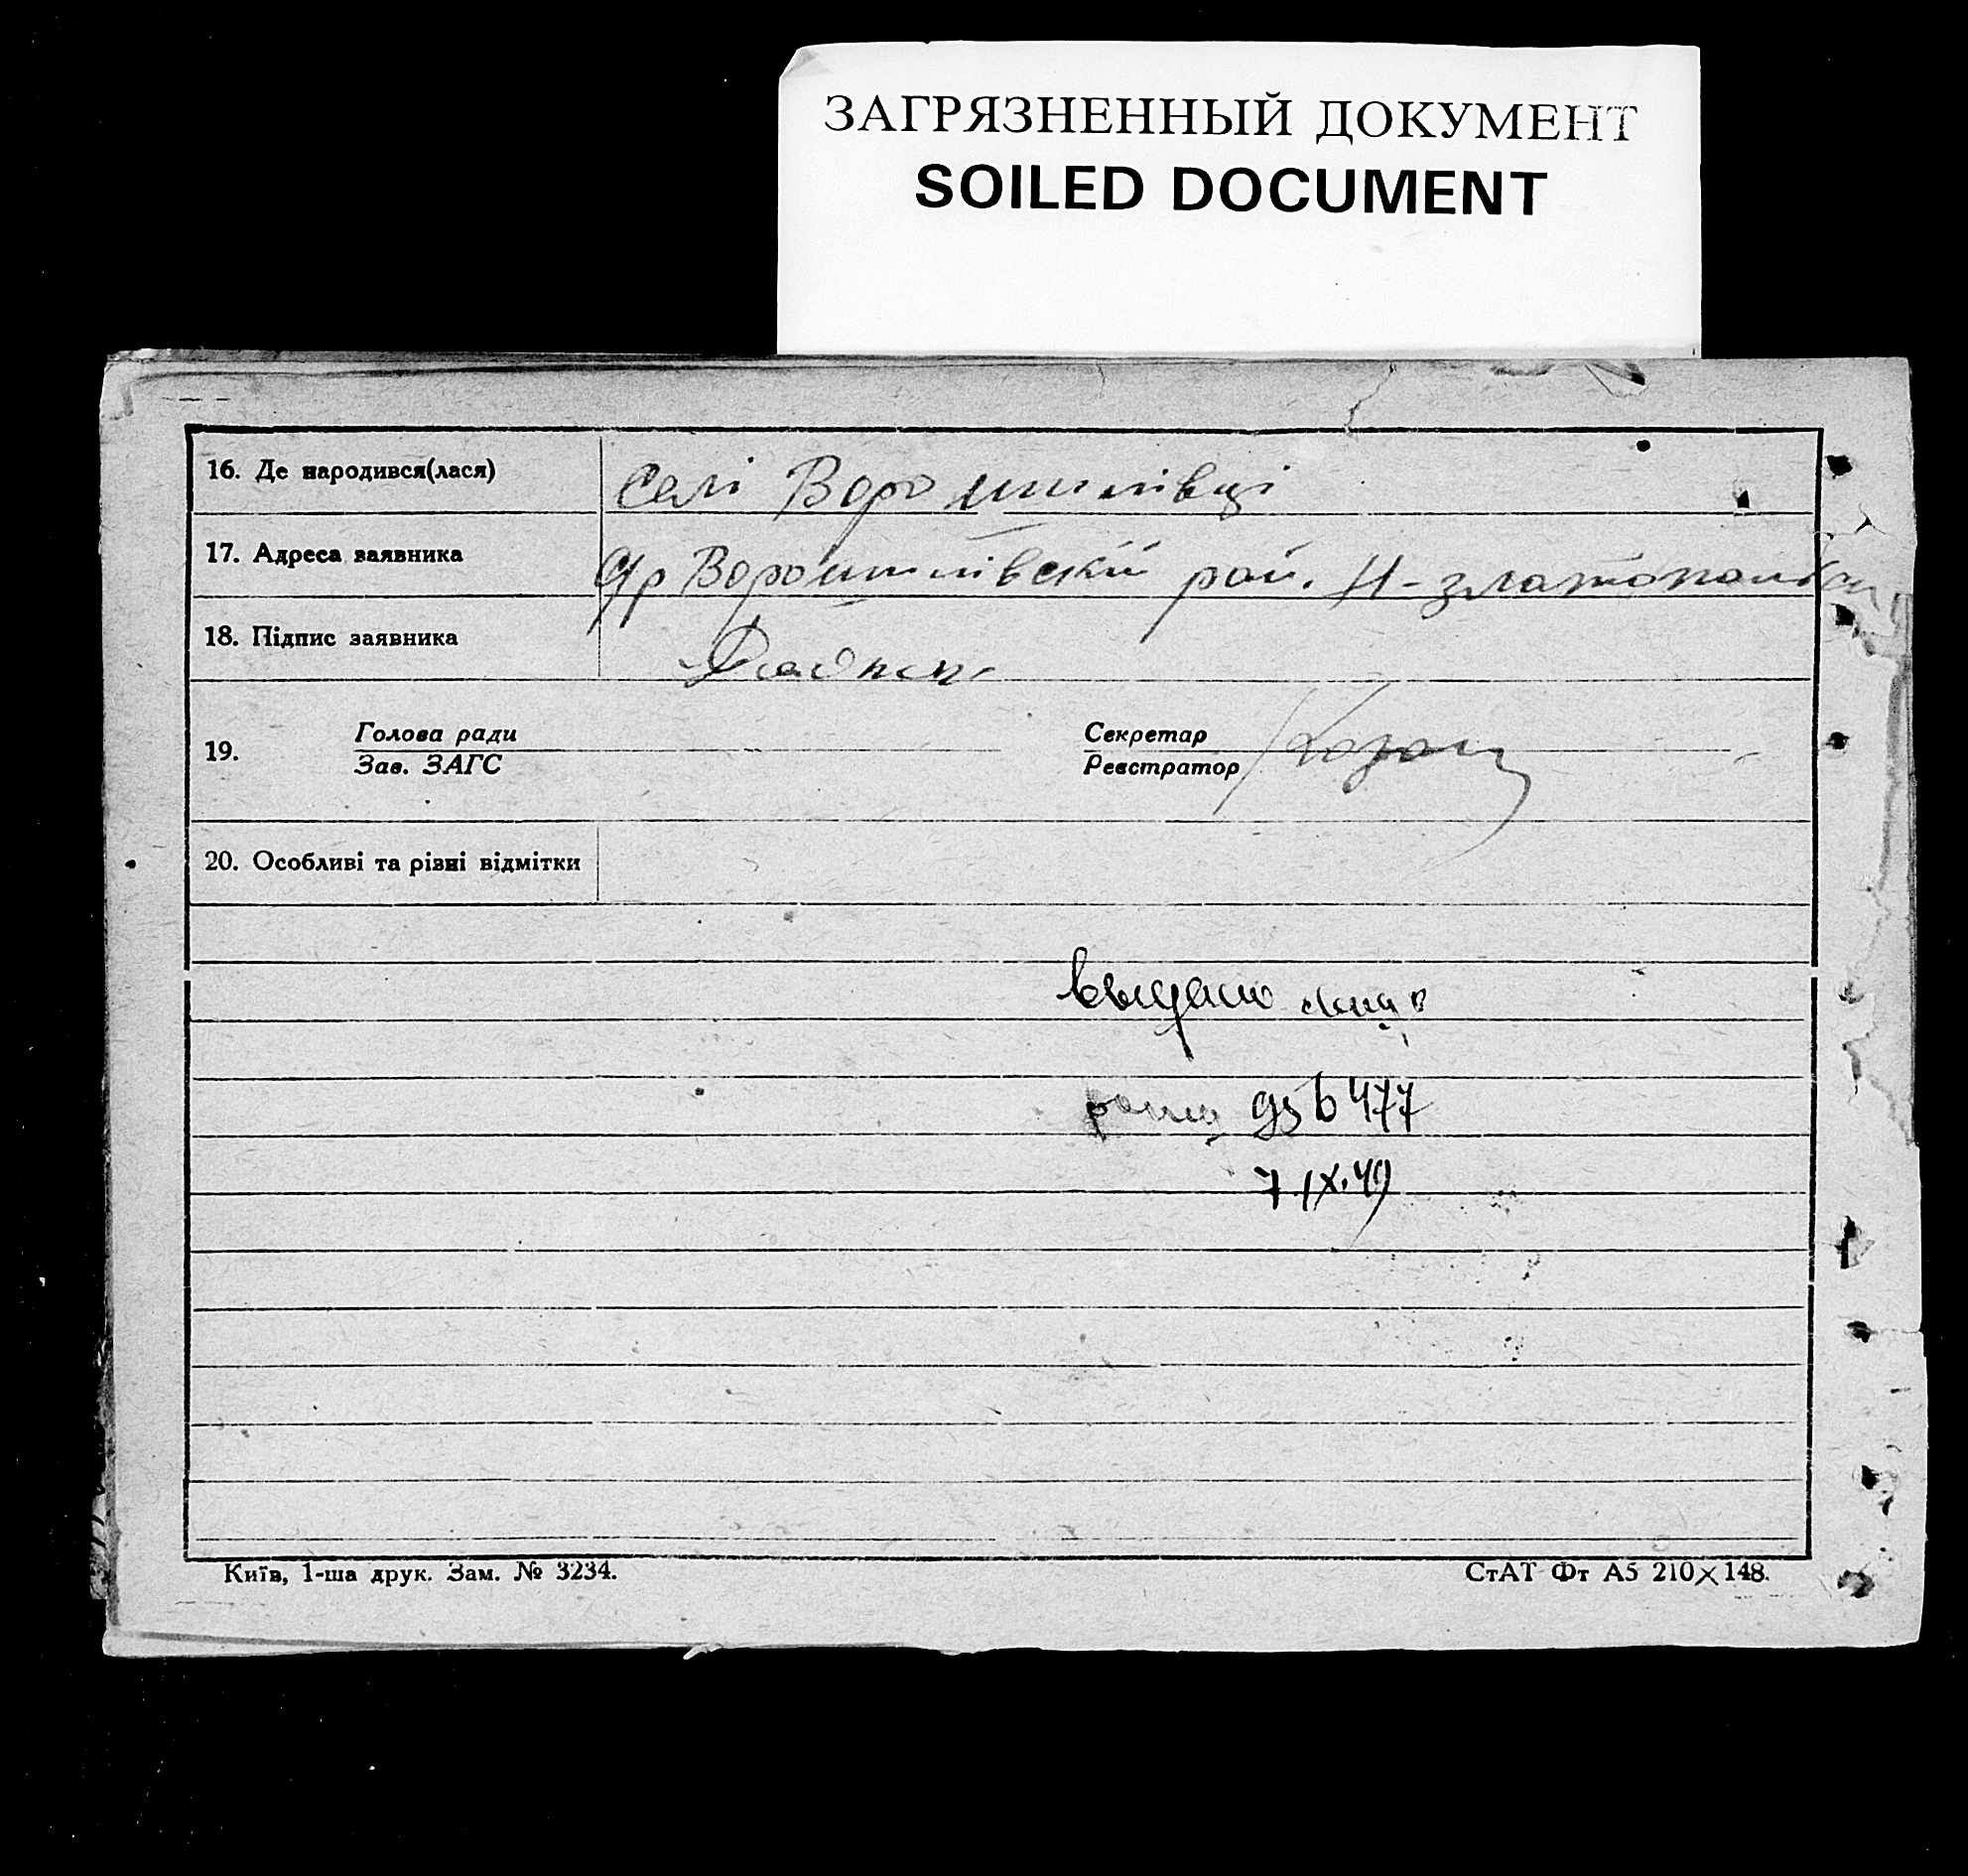 ЗАГРЯЗНЕННЫЙ ДОКУМЕНТ
SOILED DOCUMENT
16. Де народився(лася) селі Ворошилівці
17. Адреса заявника Ворошилівский рой. Н-златопольск
18. Підпис заявника
19. Голова ради Секретар
Зав. ЗАГС Реєстратор
20. Особливі та різні відмітки
477
7.IX.49
Київ, 1-ша друк. Зам. № 3234. СтАТ Фт А5 210×148.